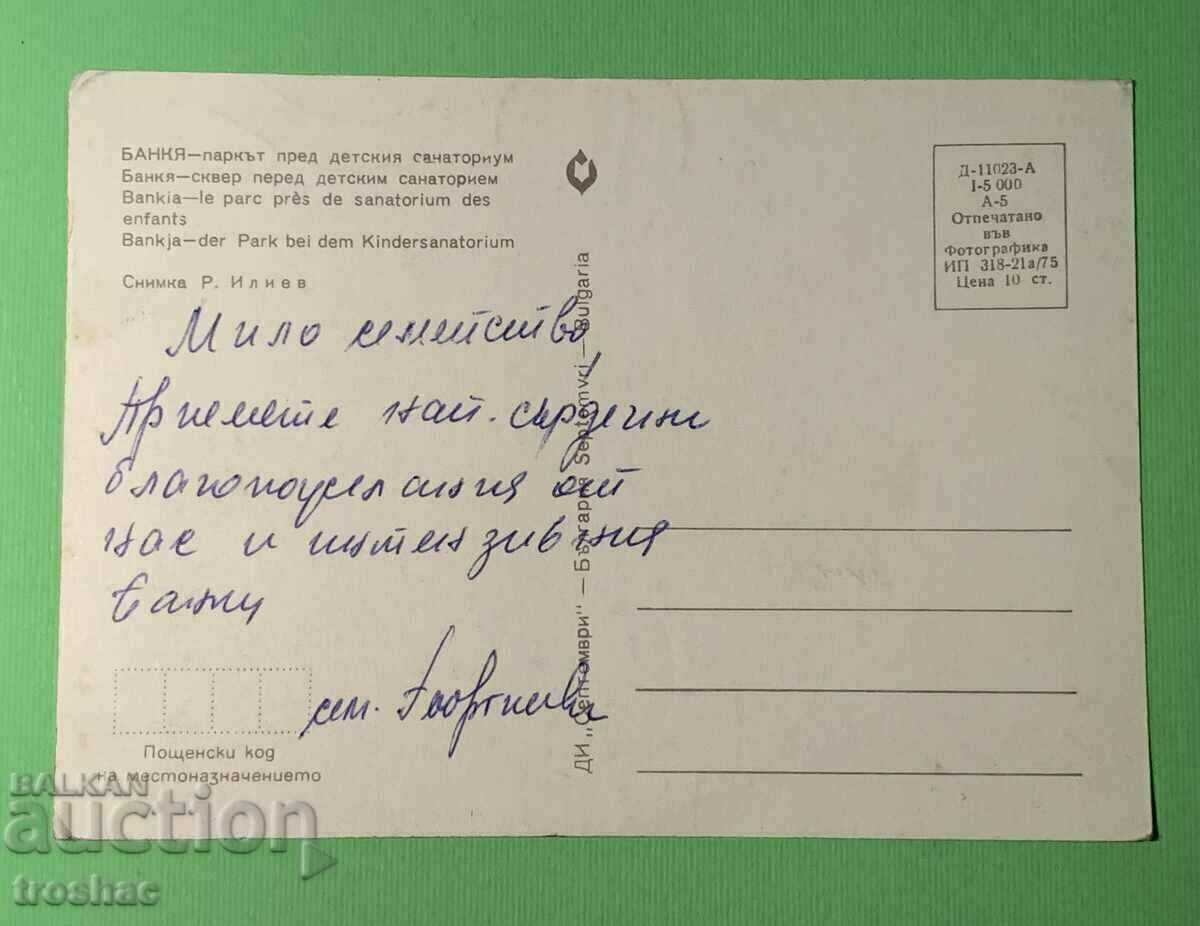 БАНКЯ—паркът пред детския санаториум
Банкя—сквер перед детским санаторием
Bankia—le parc près de sanatorium des
enfants
Bankja—der Park bei dem Kindersanatorium
Снимка Р. Илиев
Д-11023-А
I-5 000
А-5
Отпечатано
във
Фотографика
ИП 318-21а/75
Цена 10 ст.
Мило семейство,
Приемете най-сърдечни
благопожелания от
нас и
Банкя
сем. Георгиеви
ДИ „Септември" — България Septemvri — Bulgaria
Пощенски код
на местоназначението
BALKAN
auction
troshac